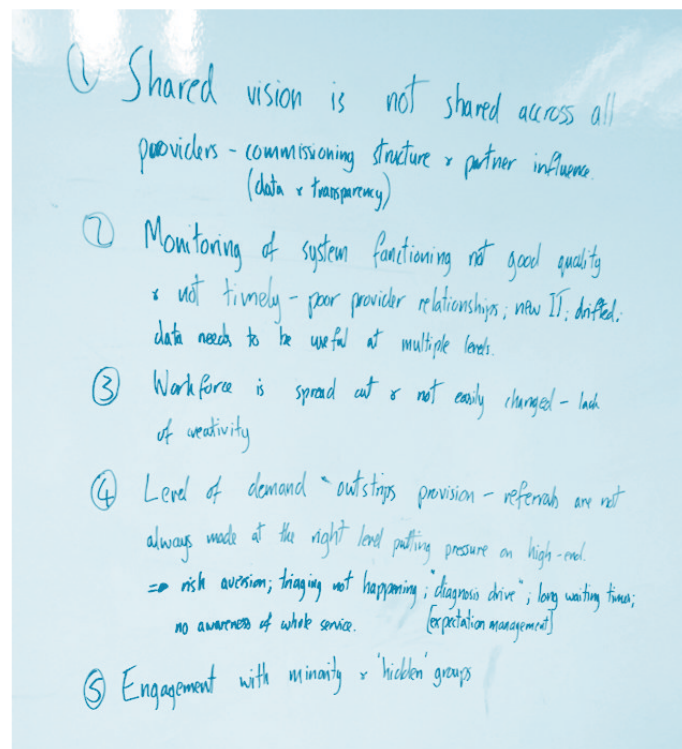 ① Shared vision is not shared accross all
providers - commissioning structure & partner influence.
(data & transparency)
② Monitoring of system functioning not good quality
& not timely - poor provider relationships; new IT; drifted;
data needs to be useful at multiple levels.
③ Workforce is spread out & not easily changed - lack
of creativity
④ Level of demand outstrips provision - referrals are not
always made at the right level putting pressure on high-end.
⇒ risk aversion; triaging not happening; "diagnosis drive"; long waiting times;
no awareness of whole service. [expectation management]
⑤ Engagement with minority & 'hidden' groups